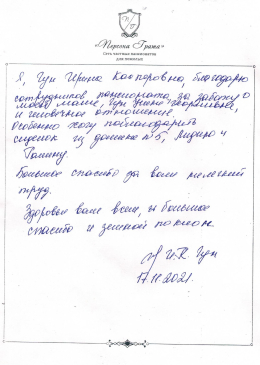 «Персона Грата»
Сеть частных пансионатов
для пожилых
Я, Гун Ирина Каспаровна, благодарю
сотрудников пансионата за заботу о
моей маме, Гун Георгиевне,
и отношение.
Особенно хочу поблагодарить
сиделок из домика №5, Лидию и
Галину.
Большое спасибо за ваш нелегкий
труд.
Здоровья вам всем, и большое
спасибо и земной поклон.
И.К. Гун
17.11.2021.